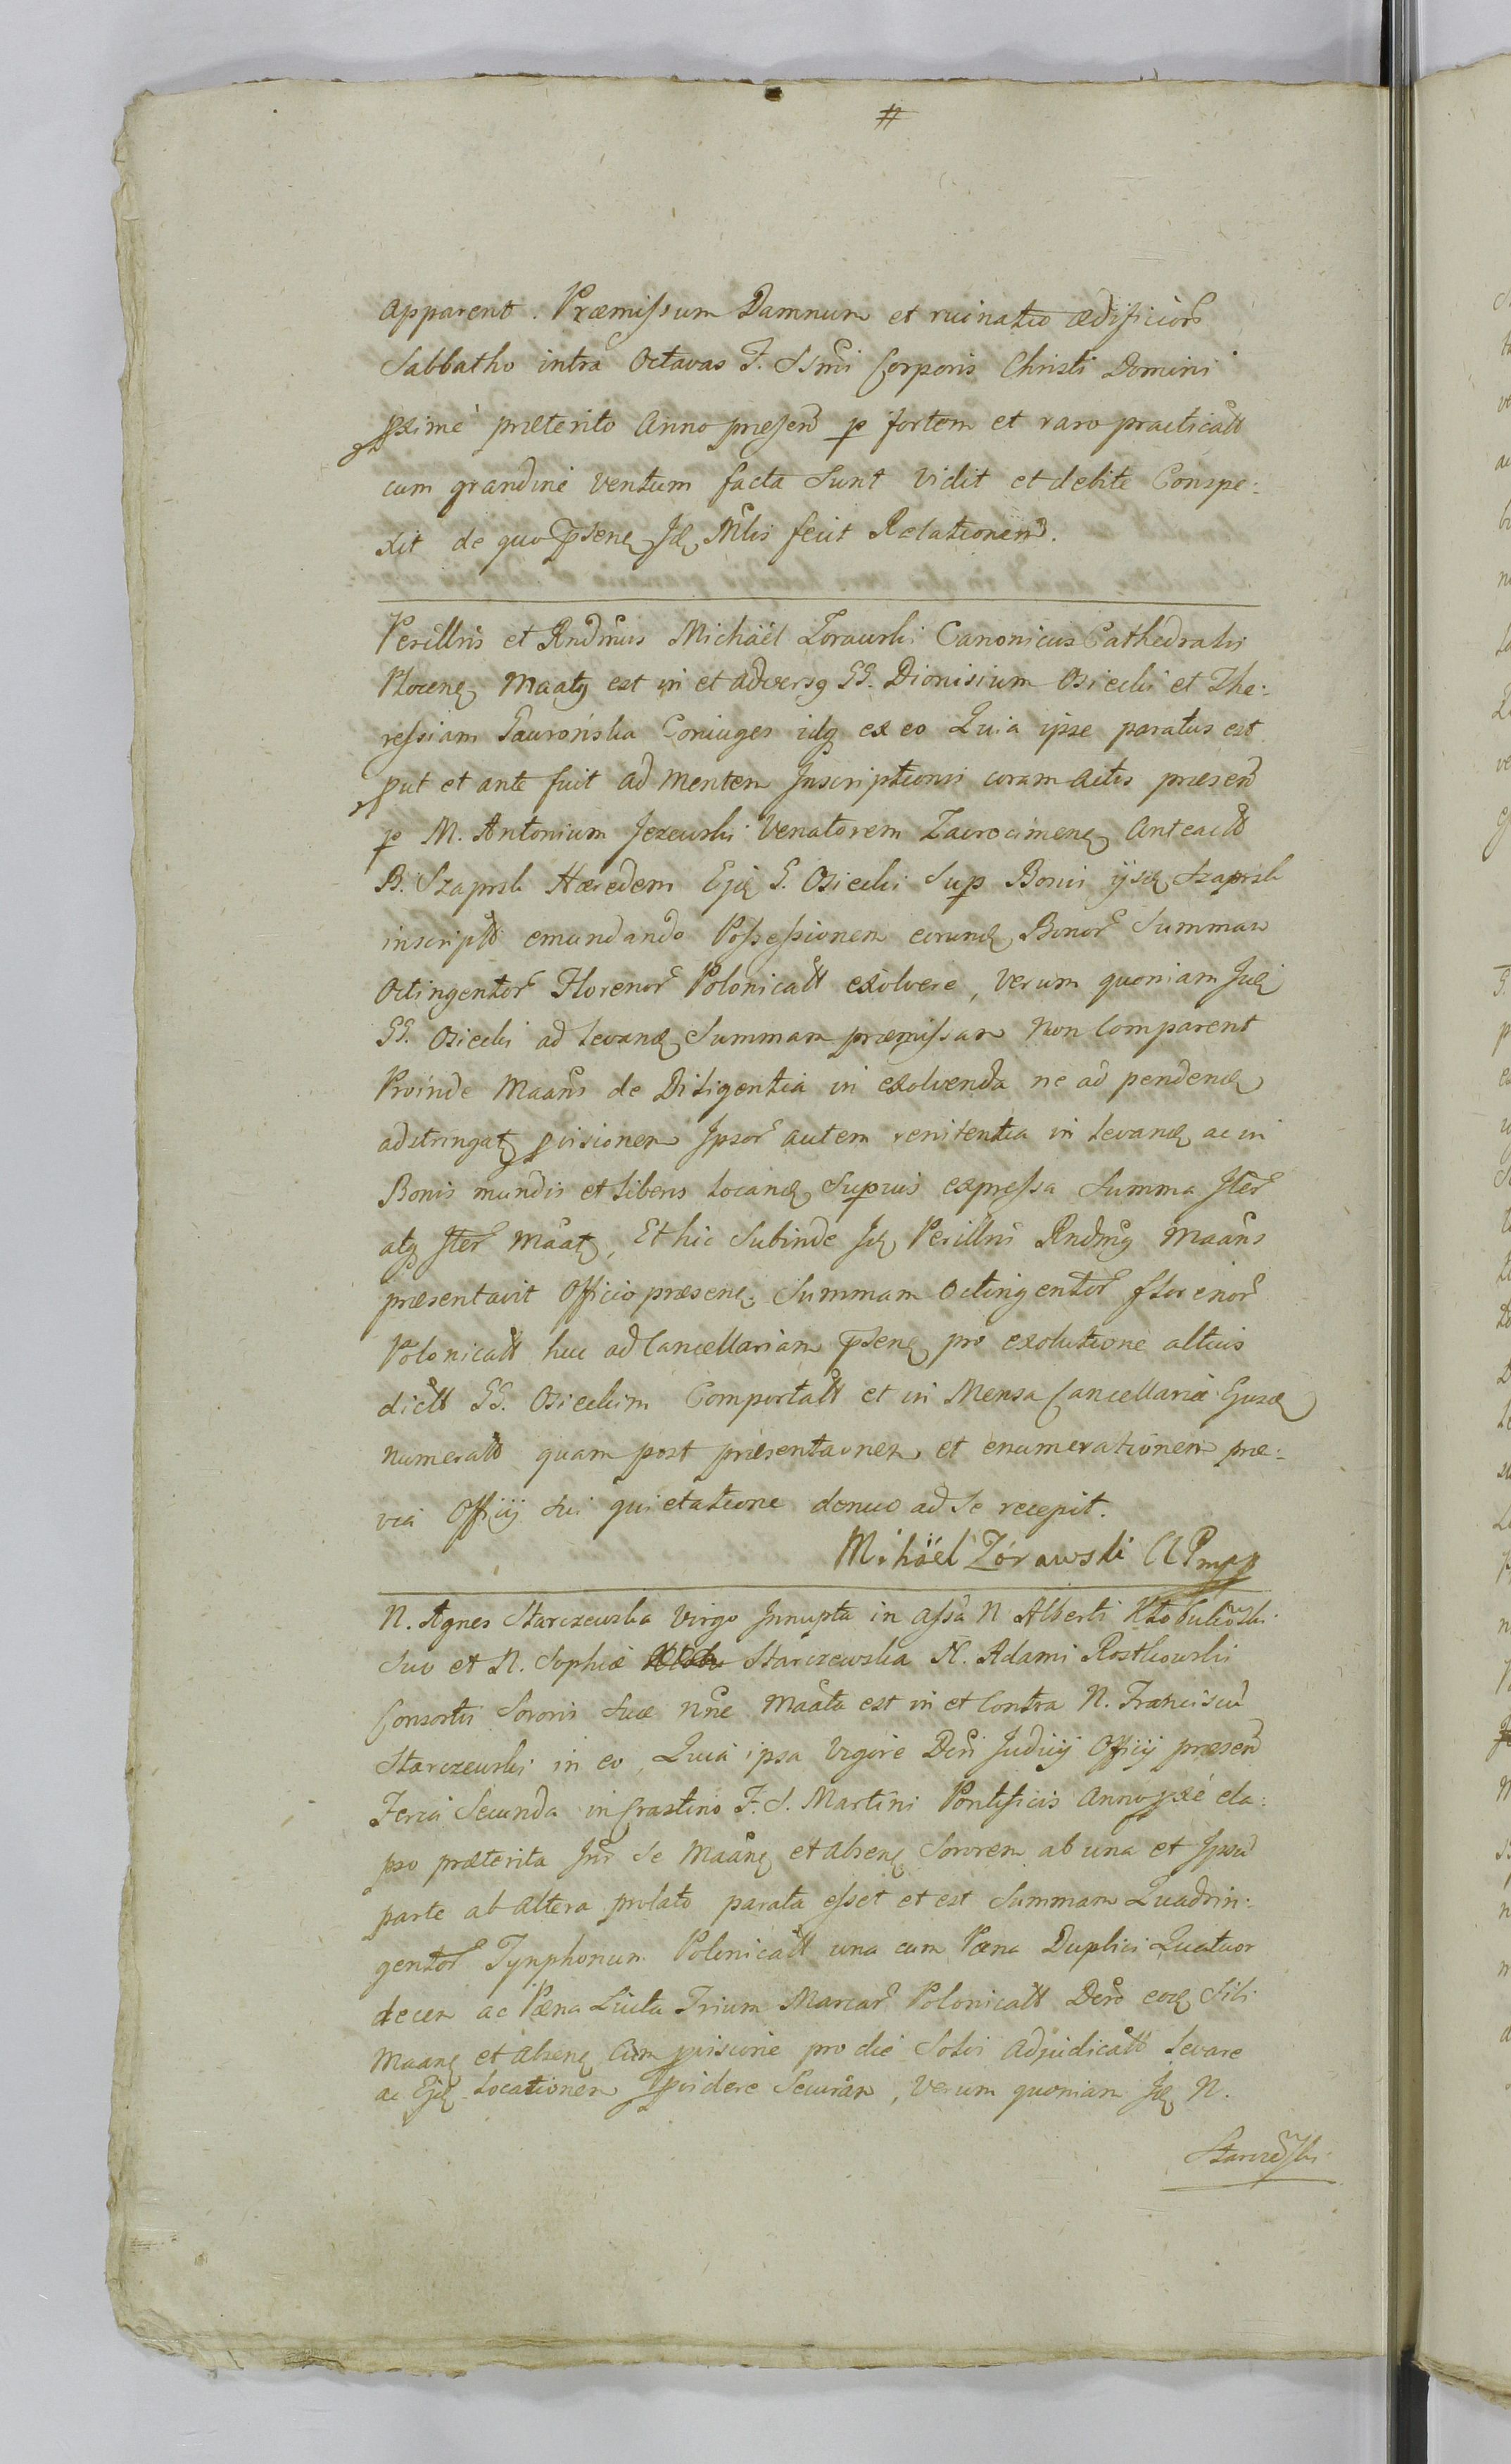 #
apparent. Præmissum Damnum et ruinatio ædificior
Sabbatho intra Octavas F. SSmi Corporis Christi Domini
pximè præterito Anno præsen p fortem et raro practicatt
cum grandine ventum facta sunt vidit et debite Conspe:
xit de quo Psenq Jd Mlis fecit Relationem.
Perillris et Rndmus Michäel Zorawski Canonicus Cathedralis
Plocenq Maatq est in et adversq GG. Dionisium Osiecki et The:
ressiam Gawrońska Coniuges idq ex eo Quia ipse paratus est
put et ante fuit ad mentem Inscriptionis coram actis præsen
p M. Antonium Jezewski Venatorem Zacrocimenq Anteactt
B. Szaprsk Hæredem Ejd G. Osiecki Sup Bonis ijsd Szaprsk
inscriptt emundando Possessionem eorund Bonor Summam
Octingentor Florenor Polonicatt exolvere, verum quoniam Jid
GG. Osiecki ad levand Summam præmissam non Comparent
Proinde Maans de Diligentia in exolvenda ne ad pendend
adstringatq pvisionem Ipsor autem renitentia in levand ac in
Bonis mundis et liberis locand Superius expressa Summa Iter
atq Iter Maatq, Et hic Subinde Jd Perillris Rndmq Maans
præsentavit Officio præsenq Summam Octingentor florenor
Polonicatt huc ad Cancellariam Psenq pro exolutione altius
dictt GG. Osieckim Comportatt et in Mensa Cancellariæ Ejusd
numeratt quam post præsentaonem et enumerationem præ:
via Officij sui quietatione denuo ad Se recepit.
Mihäel Zórawski CCPmpp
N. Agnes Starczewska Virgo Innupta in assa N. Alberti Kłobukowski
Suo et N. Sophiæ Starczewska N. Adami Rostkowski
Consortis Sororis Suæ nne Maata est in et Contra N. Franciscu
Starczewski in eo, Quia ipsa Vigore Dcri Judicij Officij præsen
Feria Secunda in Crastino F. S. Martini Pontificis Anno pxè ela:
pso præterita Inr Se Maanq et absenq Sororem ab una et Ipsu
parte ab altera prolato parata esset et est Summam Quadrin:
gentor Tynphonum Polonicatt una cum Pæna Duplici Quatuor
decem ac Pæna Luita Trium Marcar Polonicatt Dcro eod Sibi
Maanq et absenq Cum pvisione pro die Solvi adjudicatt levare
ac Ejd Locationem pvidere Securam, Verum quoniam Jd N.
Starczewski